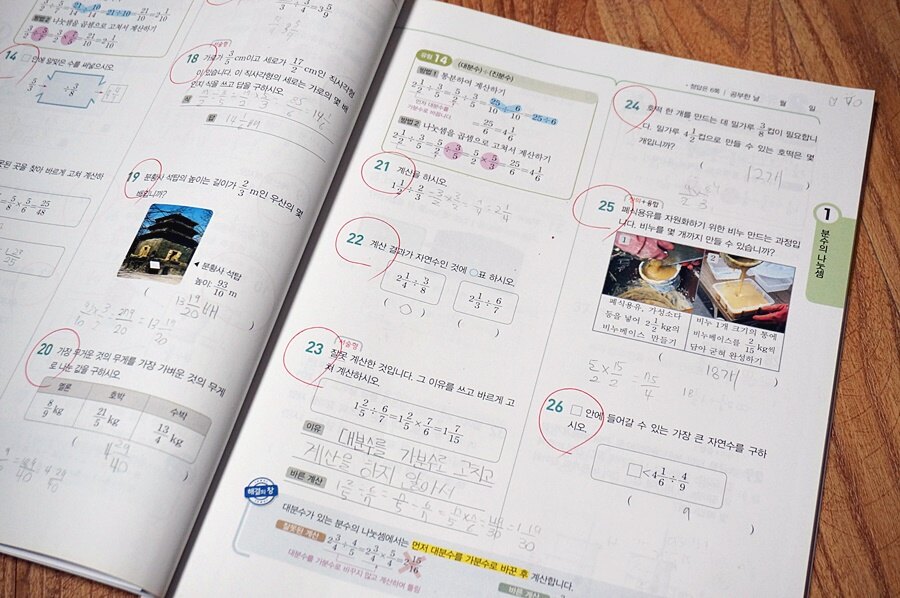 방법2 나눗셈을 곱셈으로 고쳐서 계산하기
14 □안에 알맞은 수를 써넣으시오.
÷3/8
18 서술형
가로가 3/5 cm이고 세로가 17/2 cm인 직사각형
이 있습니다. 이 직사각형의 세로는 가로의 몇 배
인지 식을 쓰고 답을 구하시오.
식
답
못된 곳을 찾아 바르게 고쳐 계산하
19 분황사 석탑의 높이는 길이가 2/3 m인 우산의 몇
배입니까?
◀ 분황사 석탑
높이: 93/10 m
( 13 19/20 배 )
20 가장 무거운 것의 무게를 가장 가벼운 것의 무게
로 나눈 값을 구하시오.
멜론 호박 수박
8/9 kg 21/5 kg 13/4 kg
정답은 6쪽 공부한 날 월 일
유형 14 (대분수)÷(진분수)
방법1 통분하여 계산하기
2 1/2 ÷ 3/5 = 5/2 ÷ 3/5 = 25/10 ÷ 6/10 = 25÷6
먼저 대분수를
가분수로 바꿉니다.
= 25/6 = 4 1/6
방법2 나눗셈을 곱셈으로 고쳐서 계산하기
2 1/2 ÷ 3/5 = 5/2 ÷ 3/5 = 5/2 × 5/3 = 25/6 = 4 1/6
21 계산을 하시오.
1 1/2 ÷ 2/3
22 계산 결과가 자연수인 것에 ○표 하시오.
2 1/4 ÷ 3/8 2 1/3 ÷ 6/7
( ○ ) ( )
23 서술형
잘못 계산한 것입니다. 그 이유를 쓰고 바르게 고
쳐 계산하시오.
1 2/5 ÷ 6/7 = 1 2/5 × 7/6 = 1 7/15
이유 대분수를 가분수로 고치고
계산을 하지 않아서
바른 계산
해결의 창
대분수가 있는 분수의 나눗셈에서는 먼저 대분수를 가분수로 바꾼 후 계산합니다.
잘못된 계산
2 3/4 ÷ 4/5 = 2 3/4 × 5/4 = 2 15/16
대분수를 가분수로 바꾸지 않고 계산하여 틀림
바른 계산
24 호떡 한 개를 만드는 데 밀가루 3/8컵이 필요합니
다. 밀가루 4 1/2컵으로 만들 수 있는 호떡은 몇
개입니까?
( 12개 )
25
폐식용유를 자원화하기 위한 비누 만드는 과정입
니다. 비누를 몇 개까지 만들 수 있습니까?
1
2
폐식용유, 가성소다
등을 넣어 2 1/2 kg의
비누베이스 만들기
비누 1개 크기의 통에
비누베이스를 2/15 kg의
담아 굳혀 완성하기
( 18개 )
26 □ 안에 들어갈 수 있는 가장 큰 자연수를 구하
시오.
□ < 4 1/4 ÷ 4/9
( 9 )
1
분수의 나눗셈